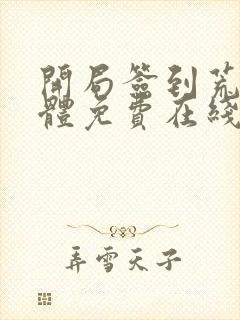 開局簽到荒
體免費在綫
弄雪天子